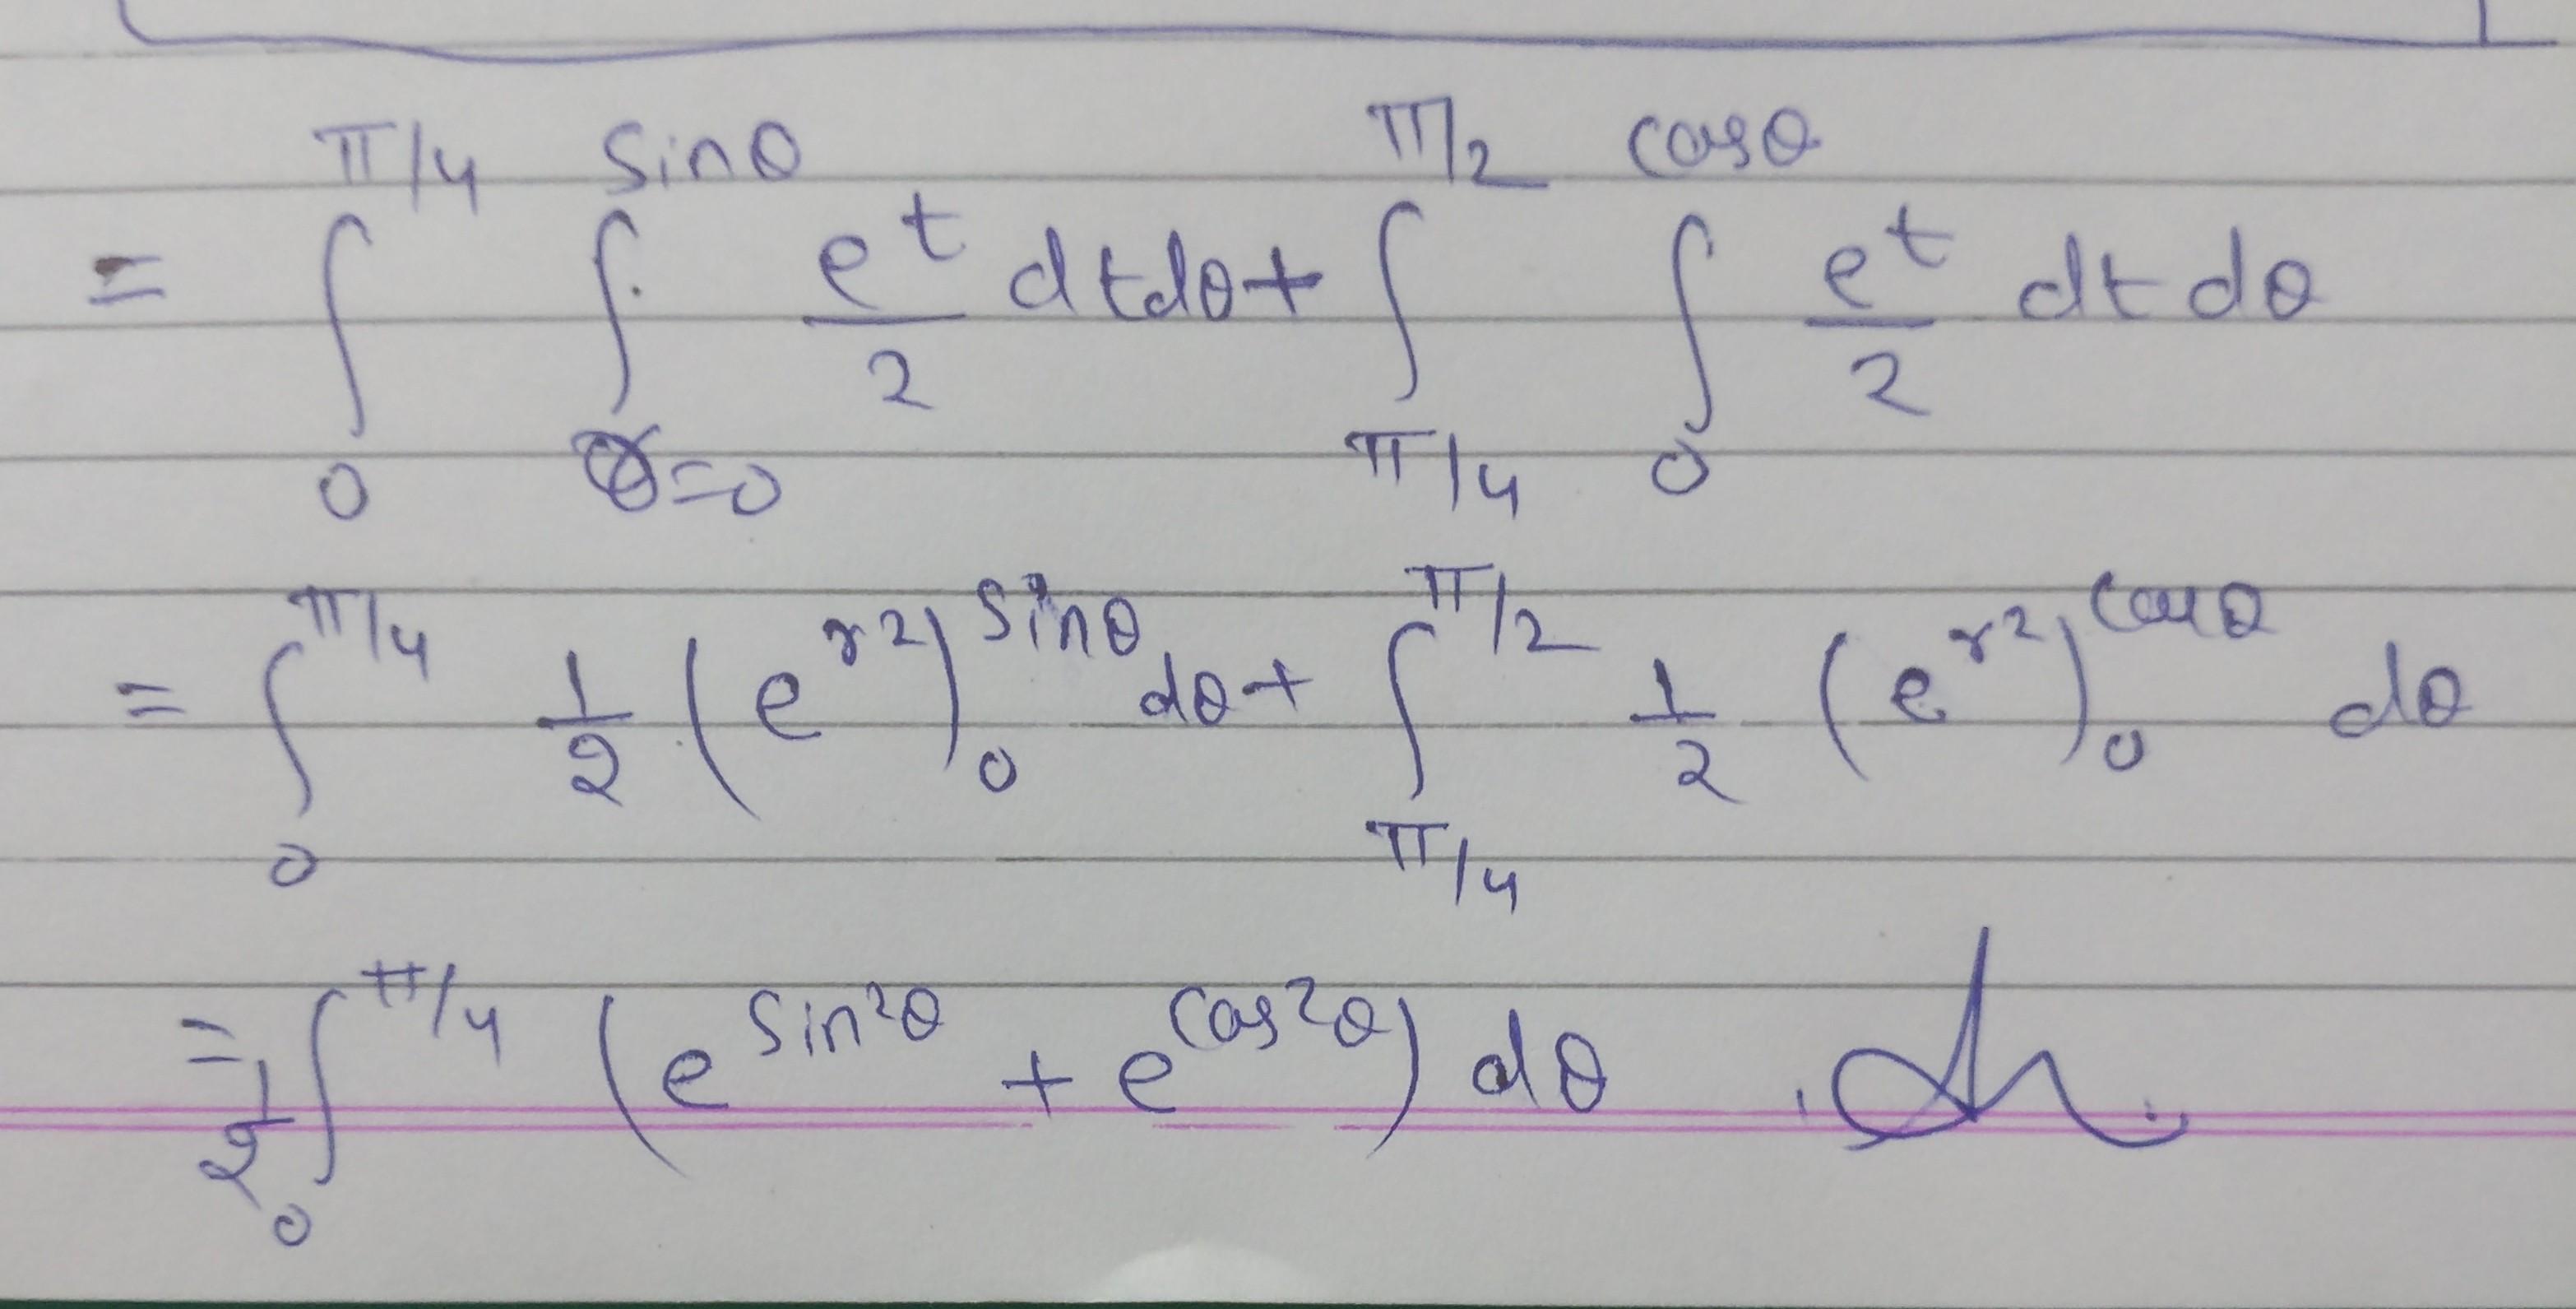 = ∫_0^{π/4} ∫_{r=0}^{sinθ} e^t/2 dtdθ + ∫_{π/4}^{π/2} ∫_0^{cosθ} e^t/2 dt dθ
= ∫_0^{π/4} 1/2 (e^{r^2})_0^{sinθ} dθ + ∫_{π/4}^{π/2} 1/2 (e^{r^2})_0^{cosθ} dθ
= 1/2 ∫_0^{π/4} (e^{sin^2θ} + e^{cos^2θ}) dθ